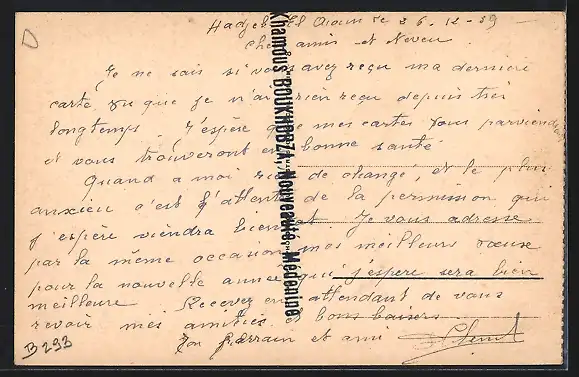 Hadjeb El Aioun le 26-12-39
Cher amis et Neveu.
Je ne sais si vous avez reçu ma dernière
carte, vu que je n'ai rien reçu depuis très
longtemps. J'espère que mes cartes vous parviendront
et vous trouveront en bonne santé
Quand a moi rien de change, et le plus
anxieu c'est l'attente de la permission qui
j'espère viendra bientôt. Je vous adresse
par la même occasion mes meilleurs vœux
pour la nouvelle année qui j'espere sera bien
meilleure. Recevez en attendant de vous
revoir mes amitiés et bons baisers.
Ton Parrain et ami
B 293
Khamous BOUKHOBZA "Nouveauté" Médenine